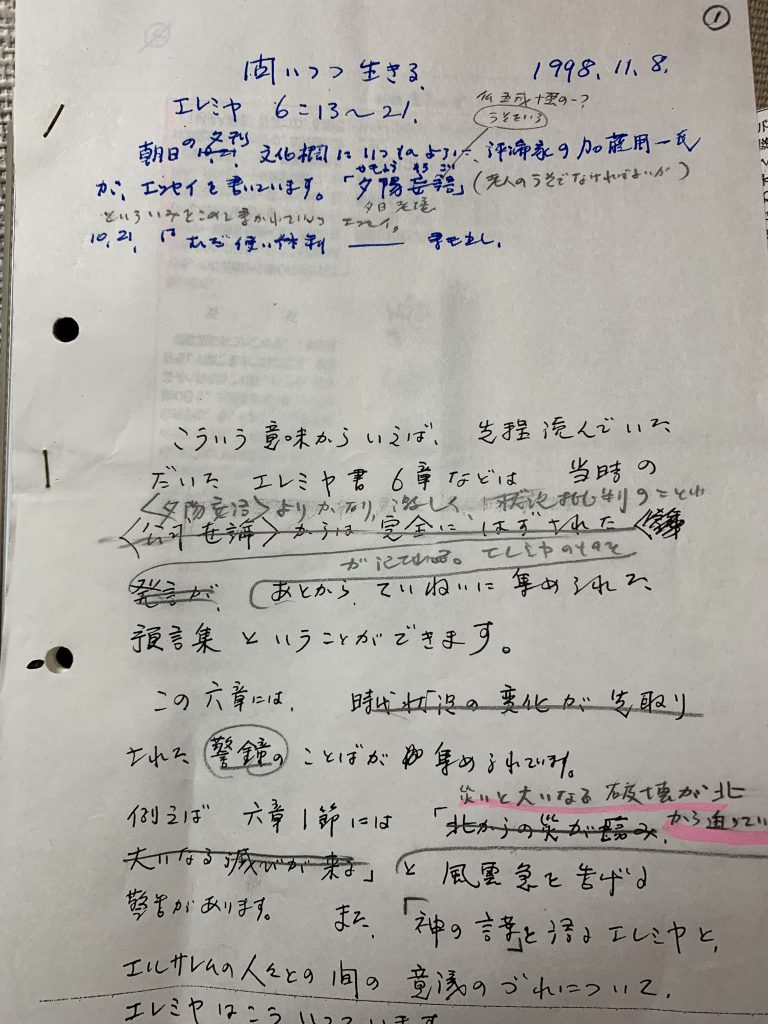 ①
問いつつ 生きる 1998. 11. 8.
エレミヤ 6=13〜21.
うそをいう
朝日の夕刊 10.21. 文化欄にいつものように、評論家の加藤周一氏
が、エッセイを書いています。「夕陽妄語」(老人のうそでなければよいが)
せきよう もうご
といういみをこめて書かれている エッセイ。
10.21. は むだ使い批判 —— 書き出し。
こういう意味からいえば、先程読んでいた
だいた エレミヤ書6章などは 当時の
〈夕陽妄語〉よりかなり激しく、状況批判のことば
〈公同世論〉からは 完全に はずされた
が記されている。エレミヤのそれを
発言が、 あとから ていねいに 集められた
預言集 ということができます。
この六章には、 時代状況の変化が先取り
された 警鐘の ことばが 集められています。
災いと大いなる破壊が北
から迫ってい
例えば 六章1節には 「北からの災が臨み、
大いなる滅びが来る」と 風雲急を告げる
警告があります。 また、「神の言葉」を語るエレミヤと、
エルサレムの人々との間の 意識のづれについて、
エレミヤはこういっています